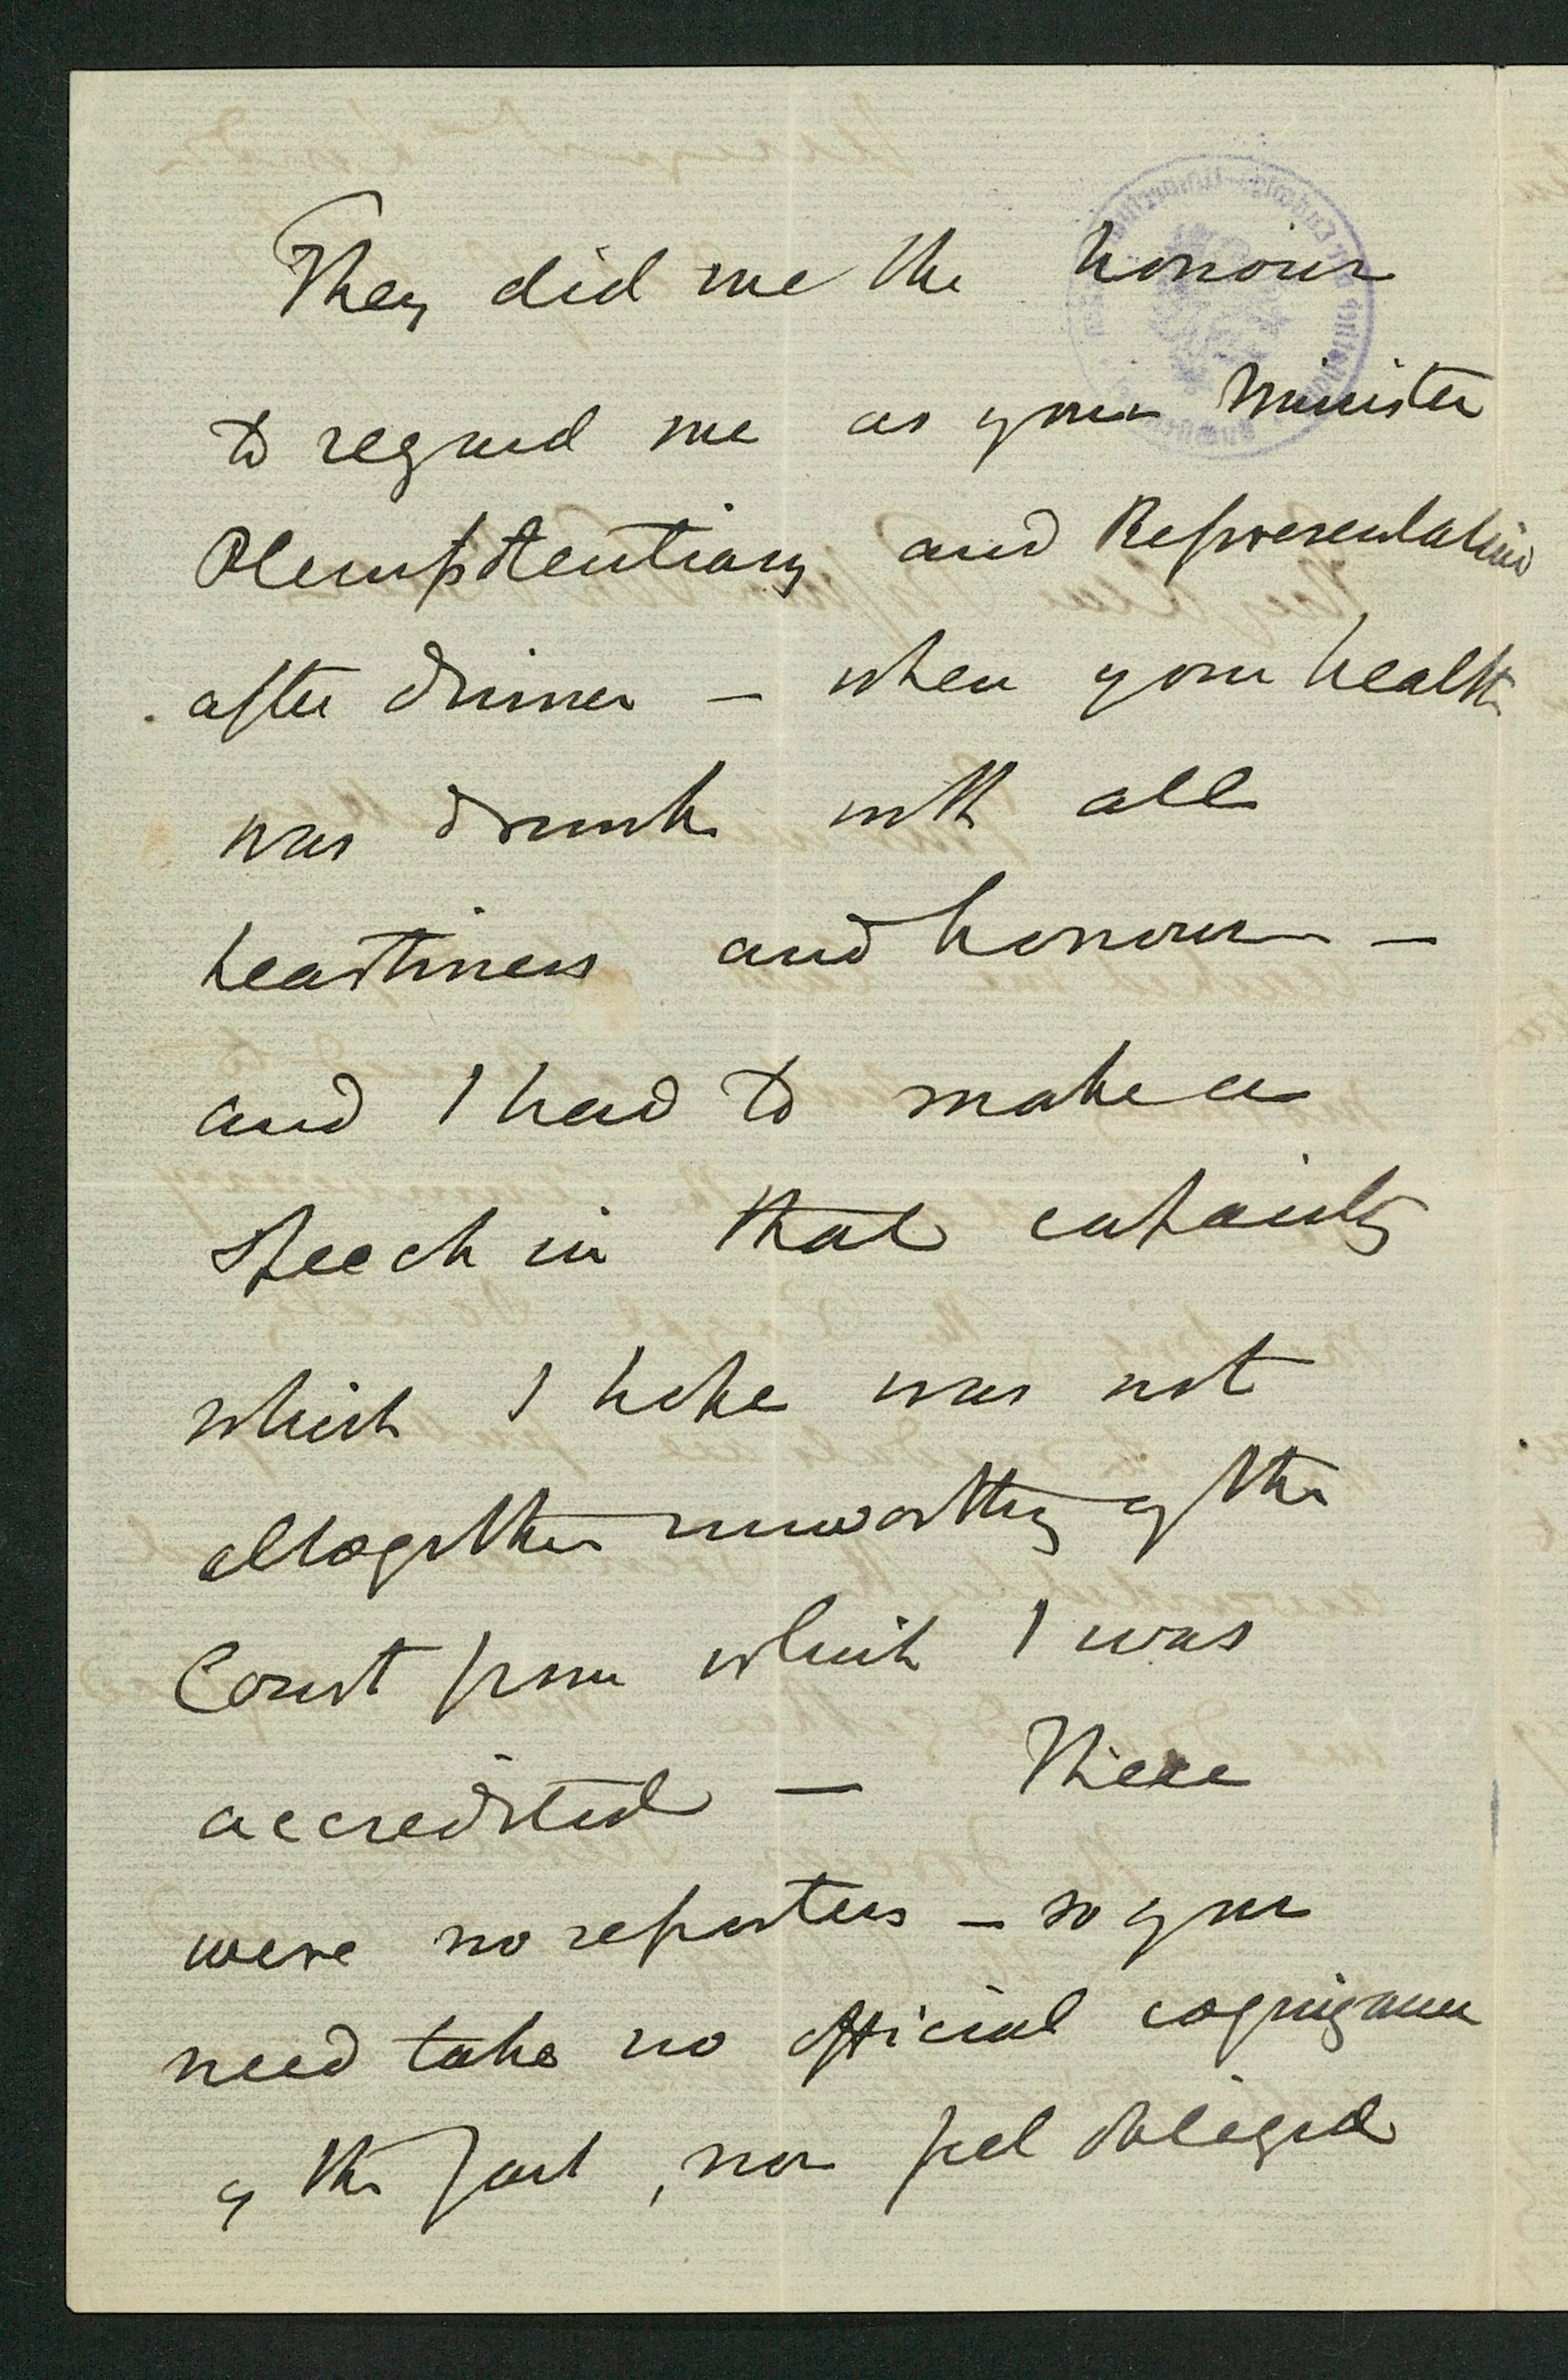 They did me the honour
to regard me as your Minister
Plenipotentiary and Representative
after dinner – when your health
was drunk with all
heartiness and honour –
and I had to make a
speech in that capacity
which I hope was not
altogether unworthy of the
Court from which I was
accredited – There
were no reporters – so you
need take no official cognizance
of the fact, nor feel obliged